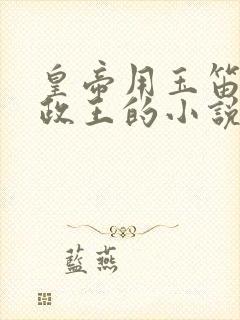 皇帝用玉笛
政王的小說
藍燕